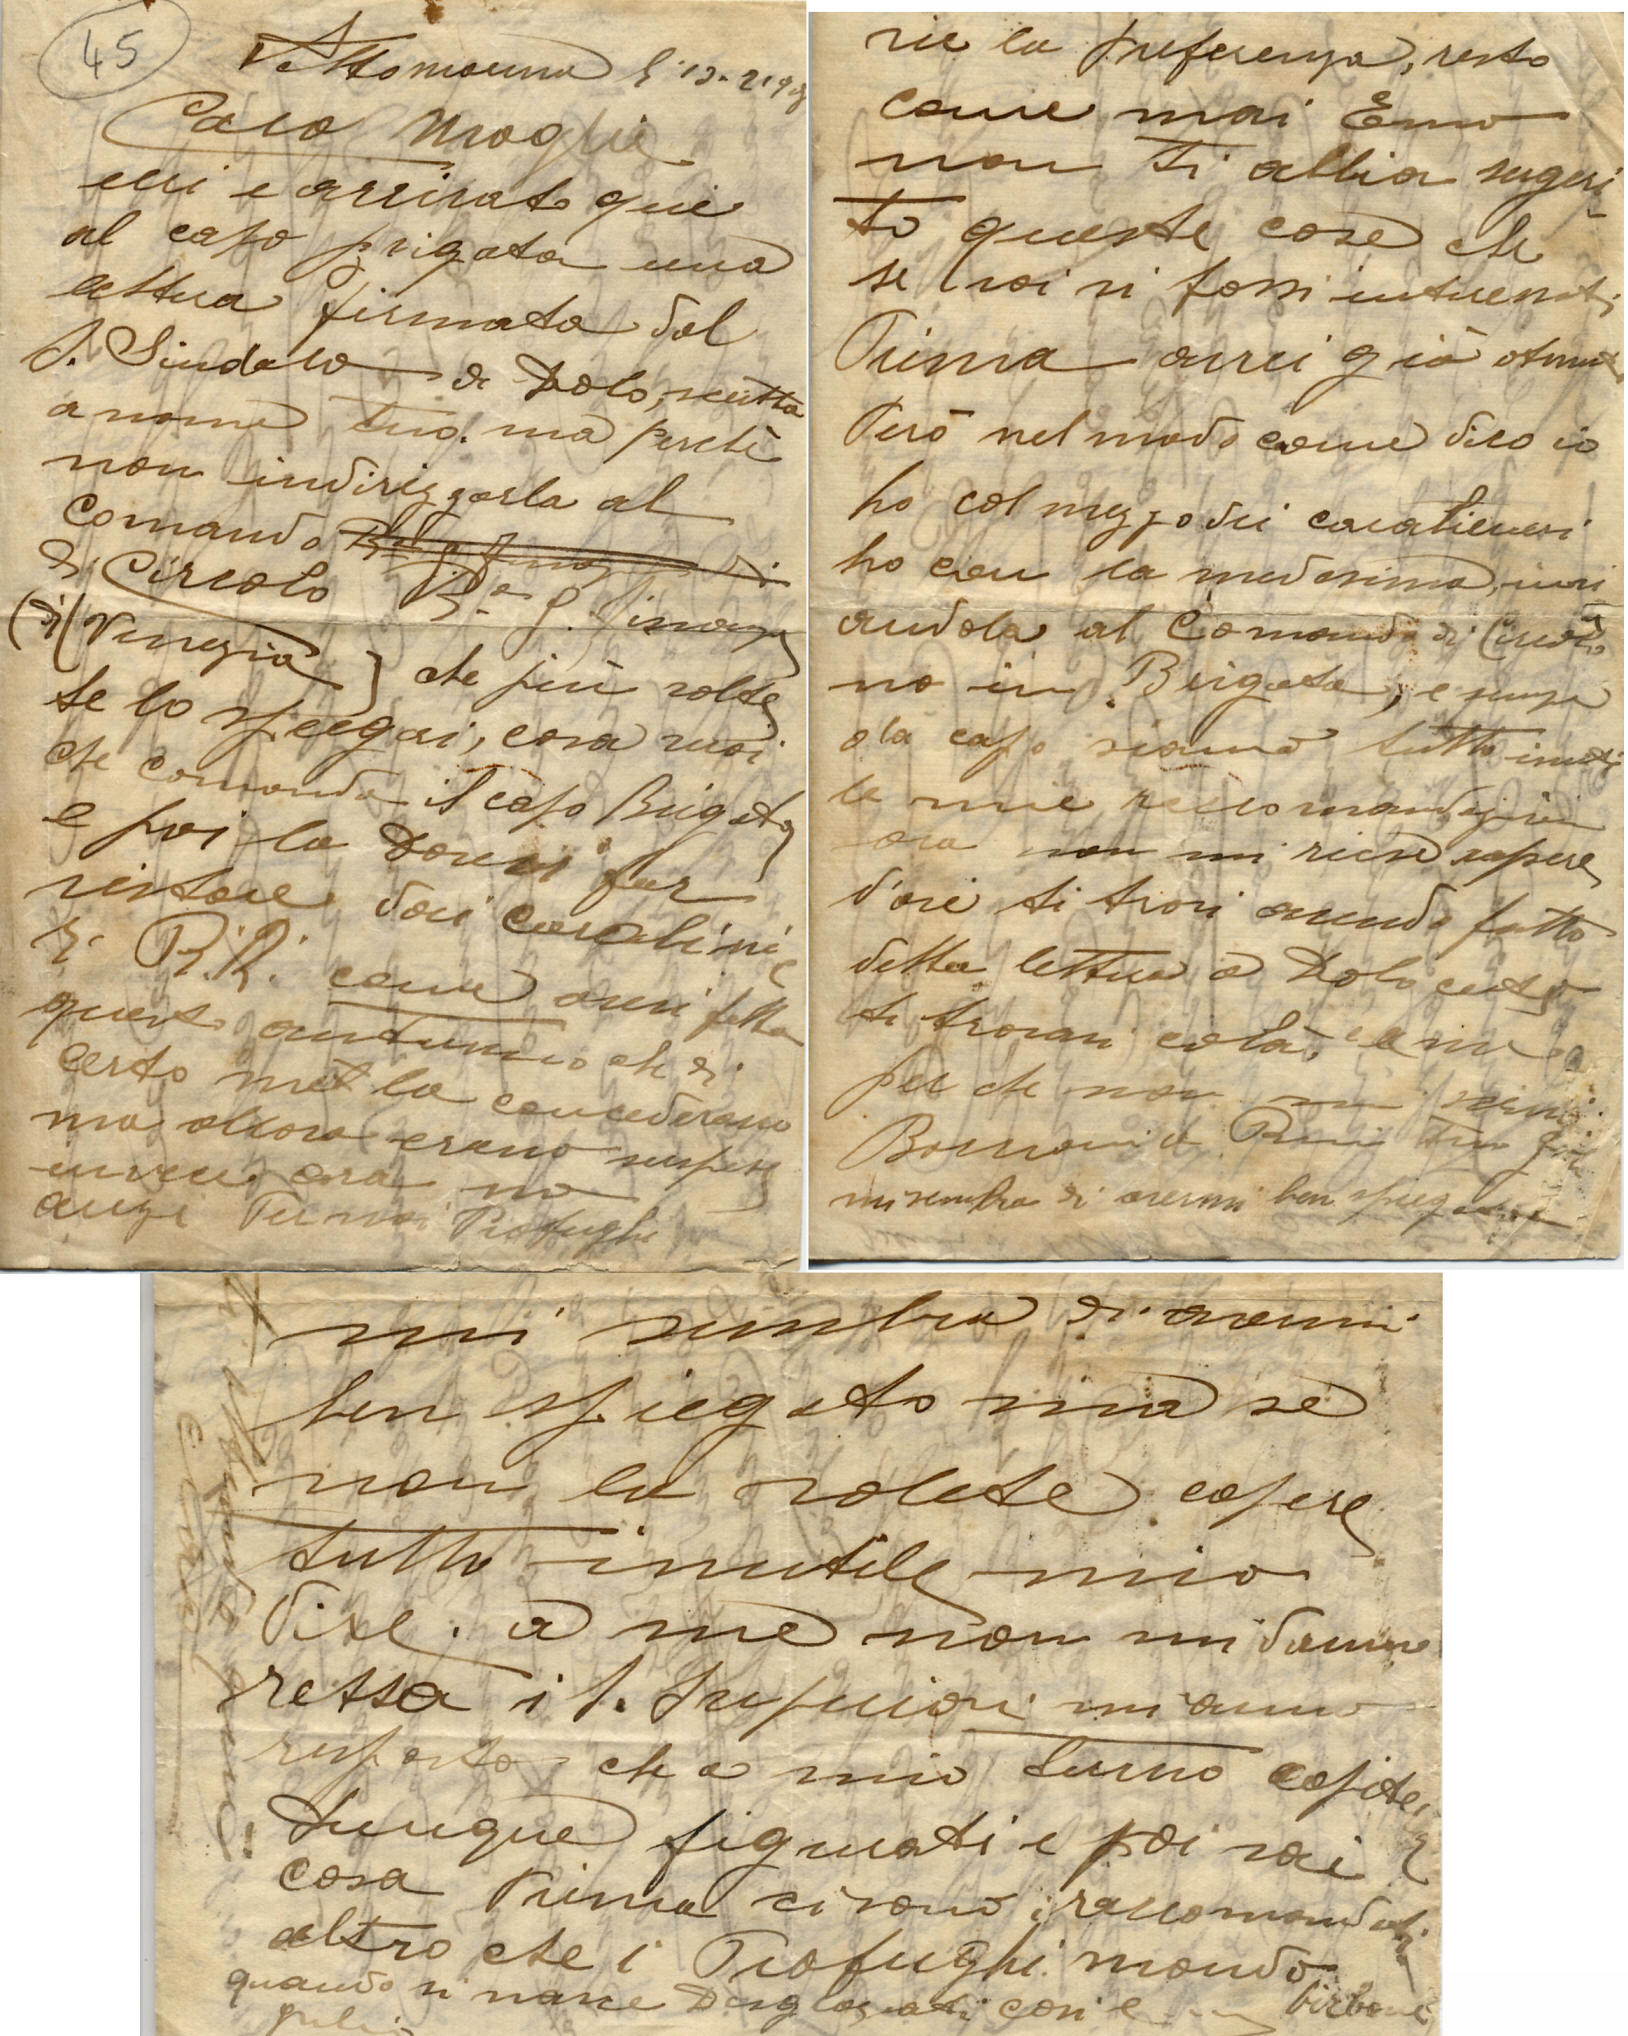 45
Cara Moglie
ieri e arrivato qui
al capo prigata una
lettera firmata dal
S. Sindaco di Dolo, scritta
a nome tuo. ma perchè
non indirizzarla al
Comando
di Circolo Ra g. finanza
(di) Venezia) che più volte
te lo spiegai, cosa vuoi
che comanda il capo Brigata
e poi la Dovevi far
dai carabini
R.R. come avevi fatto
questo autunno che di
certo me la concederano
ma allora erano suspese
invece ora no
anze Per noi Profughi
la preferenza, resto
come mai Emo
non ti abbia sugeri
to queste cose che
se voi vi fossi interessati
Prima avrei già
Però nel modo come dico io
ho col mezzo dei carabinieri
ho con la medesima, invi
andola al Comando di Circolo
no in Brigata, e sempre
capo siamo tutto inutili
le mie raccomandazioni
ora non mi riese sapere
d'ove ti trovi avendo fatto
detta lettera a Dolo certo
ti trovavi colà, e
per che non mi scrivi
mi sembra di avermi ben spiegato
mi sembra di avermi
ben spiegato ma se
non la volete capere
tutto inutile mio
Dire. a me non mi danno
retta i S. Superiori mi anno
risposto che a mio turno capite
dunque figurati e poi sai
cosa Prima ci sono i raccomandati
altro che i Profughi mondo
quando si nasce Disgraziati cosi e birbone